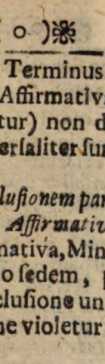 o )❋
Terminus
Affirmativ
tur) non d
erſaliter ſu
luſionem par
Affirmativ
nativa, Min
o ſedem, p
cluſione un
ne violetur